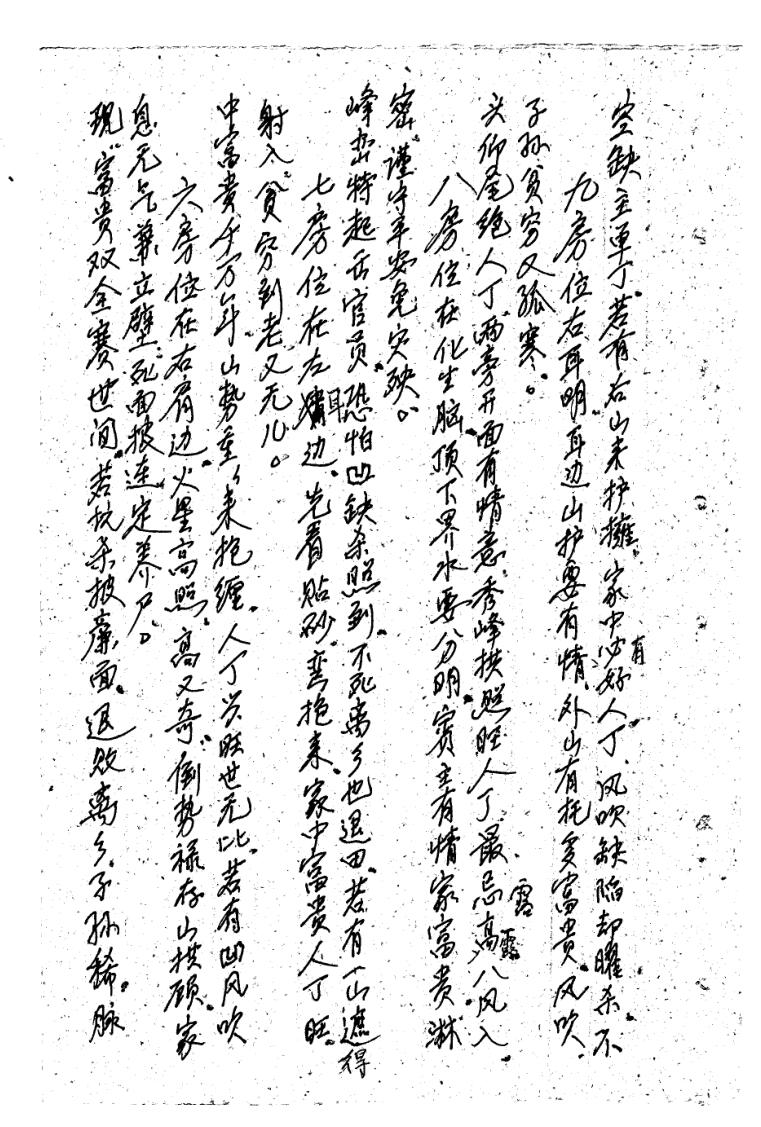 现。富贵双全赛世间。若枕杀披廉面。退败离乡子孙稀。脉
息无气葬立壁。死面披连定养尸。
六房位在右肩边。火星高照高又奇。倒势禄存山拱顾。家
中富贵千万年。山势重重来抱缠。人丁兴旺世无比。若有凹风吹
射入。贫穷到老又无儿。
七房位在左耳边。先看贴砂弯抱来。家中富贵人丁旺。
峰峦特起舌官员。恐怕凹缺杀照到。不死离乡也退田。若有一山遮得
密。谨守平安免灾殃。
八房位在化生脑。顶下界水要分明。宾主有情家富贵。淋
头仰尾绝人丁。两旁开面有情意。秀峰拱照旺人丁。最忌高露八风入。
子孙贫穷又孤寒。
九房位右耳明。耳边山护要有情。外山有托多富贵。风吹
空缺主单丁。若有后山来护拥。家中必有好人丁。风吹缺陷却曜杀。不